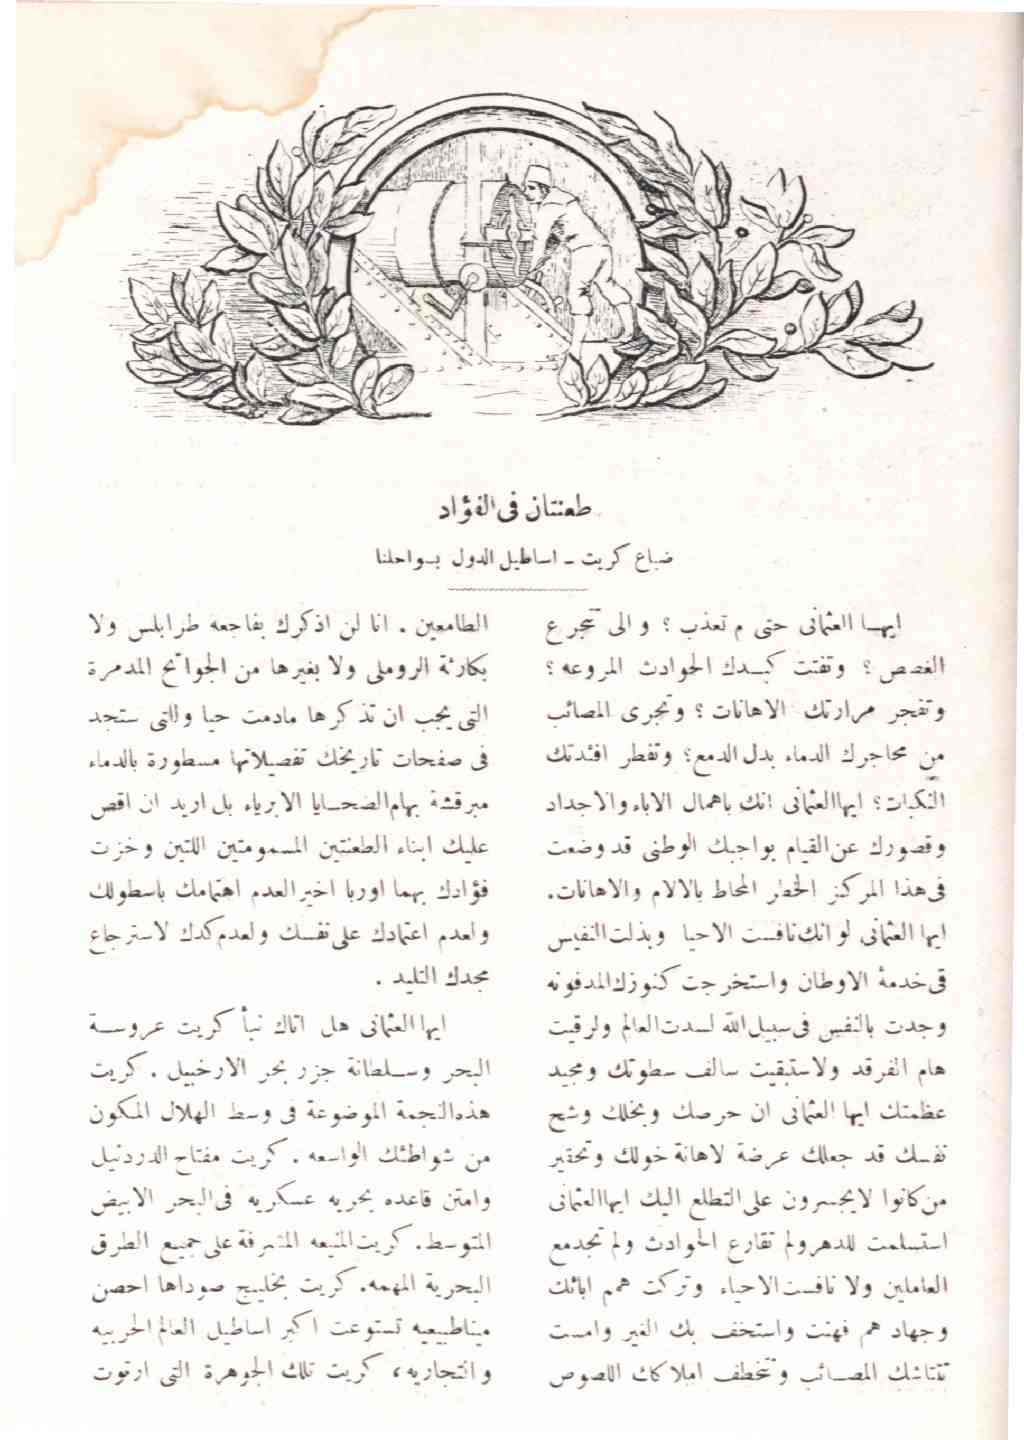 طعنتان فى الفؤاد
ضياع كريت ـ اساطيل الدول بسواحلنا
ايهـا العثمانى حتى م تعذب ؟ و الى تتجرع
الغصص ؟ وتفتت كبـدك الحوادث المروعه ؟
وتفجر مرارتك الاهانات ؟ وتجرى المصائب
من محاجرك الدماء بدل الدمع؟ وتفطر افئدتك
النكبات؟ ايها العثمانى انك باهمال الاباء والاجداد
وقصورك عن القيام بواجبك الوطنى قد وضعت
فى هذا المركز الخطر المحاط بالالام والاهانات.
ايها العثمانى لو انك نافست الاحيا وبذلت النفيس
فى خدمة الاوطان واستخرجت كنوزك المدفونه
وجدت بالنفس فى سبيل الله لسدت العالم ولرقيت
هام الفرقد ولاستبقيت سالف سطوتك ومجيد
عظمتك ايها العثمانى ان حرصك وبخلك وشح
نفسك قد جعلك عرضة لاهانة خولك وتحقير
من كانوا لايجسرون على التطلع اليك ايها العثمانى
استسلمت للدهر ولم تقارع الحوادث ولم تجدمع
العاملين ولا نافست الاحياء وتركت همم ابائك
وجهاد هم فهنت واستخف بك الغير وامست
تنتاشك المصـائب وتتخطف املاكك اللصوص
الطامعين . انا لن اذكرك بفاجعه طرابلس ولا
بكارثة الروملى ولا بغيرها من الجوائح المدمرة
التى يجب ان تذكرها مادمت حيا واللتى ستجد
فى صفحات تاريخك تفصيلاتها مسطورة بالدماء
مبرقشة بهام الضحـايا الابرياء بل اريد ان اقص
عليك ابناء الطعنتين المسمومتين اللتين وخزت
فؤادك بهما اوربا اخير العدم اهتمامك باسطولك
ولعدم اعتمادك على نفسك ولعدم كدك لاسترجاع
مجدك التليد .
ايها العثمانى هل اتاك نبأ كريت عروسـة
البحر وسـلطانة جزر بحر الارخبيل . كريت
هذه النجمة الموضوعة فى وسط الهلال المكون
من شواطئك الواسعه . كريت مفتاح الدردنيل
وامتن قاعده بحريه عسكريه فى البحر الابيض
المتوسط. كريت المنيعه المشرفة على جميع الطرق
البحرية المهمه. كريت بخليج صوداها احصن
ميناطبيعيه تستوعت اكبر اساطيل العالم الحربيه
والتجاريه، كريت تلك الجوهرة التى ارتوت